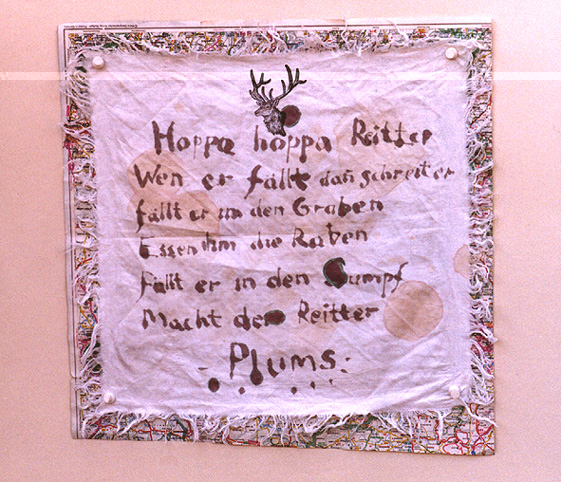 Hoppa hoppa Reitter
Wen er fällt dan schreit er
fällt er in den Graben
Essen ihm die Raben
fällt er in den Sumpf
Macht der Reitter
Plums.